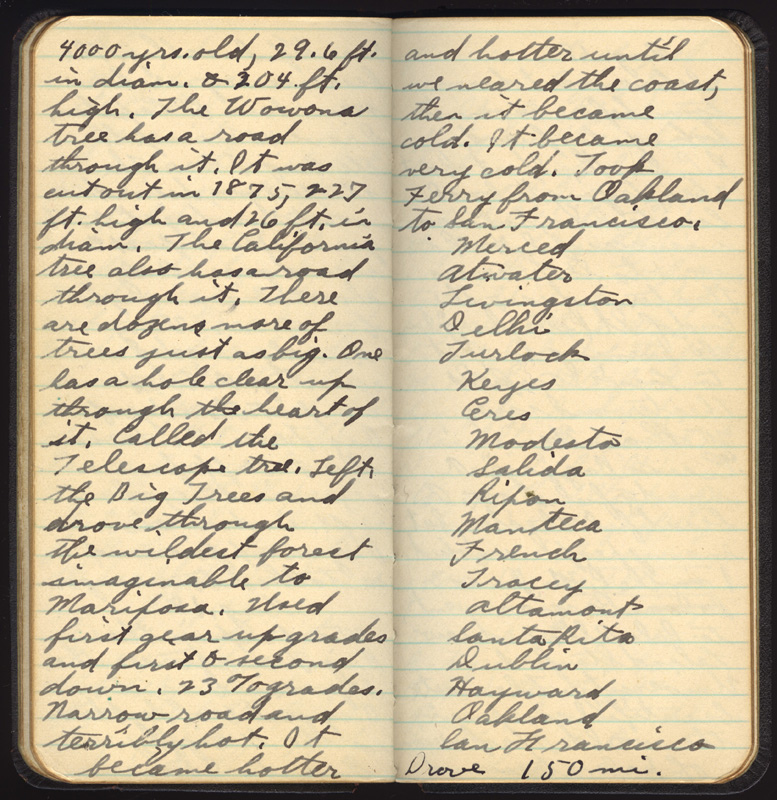 4000 yrs. old, 29.6 ft.
in diam. & 204 ft.
high. The Wowona
tree has a road
through it. It was
cut out in 1875, 227
ft. high and 26 ft. in
diam. The California
tree also has a road
through it. There
are dozens more of
trees just as big. One
has a hole clear up
through the heart of
it. Called the
Telescope tree. Left
the Big Trees and
drove through
the wildest forest
imaginable to
Mariposa. Used
first gear up grades
and first & second
down. 23% grades.
Narrow road and
terribly hot. It
became hotter
and hotter until
we neared the coast,
then it became
cold. It became
very cold. Took
Ferry from Oakland
to San Francisco.
Merced
Atwater
Livingston
Delhi
Turlock
Keyes
Ceres
Modesto
Salida
Ripon
Manteca
French
Tracey
Altamont
Santa Rita
Dublin
Hayward
Oakland
San Francisco
Drove 150 mi.